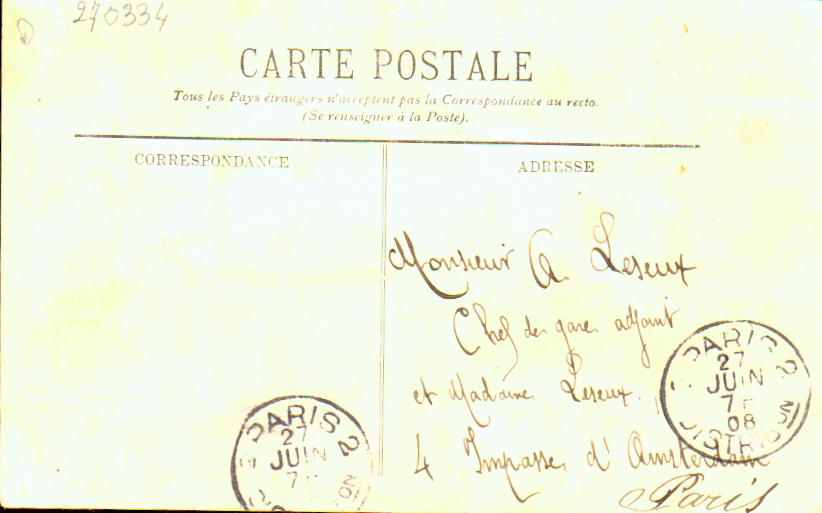 270334
D
CARTE POSTALE
Tous les Pays étrangers n'acceptent pas la Correspondance au recto.
(Se renseigner à la Poste).
CORRESPONDANCE
ADRESSE
Monsieur A. Leseux
Chef de gare adjoint
et Madame Leseux.
4 Impasse d'Amsterdam
Paris
PARIS 2
27
JUIN
7
08
DISTRIBUTION
PARIS 2
27
JUIN
7